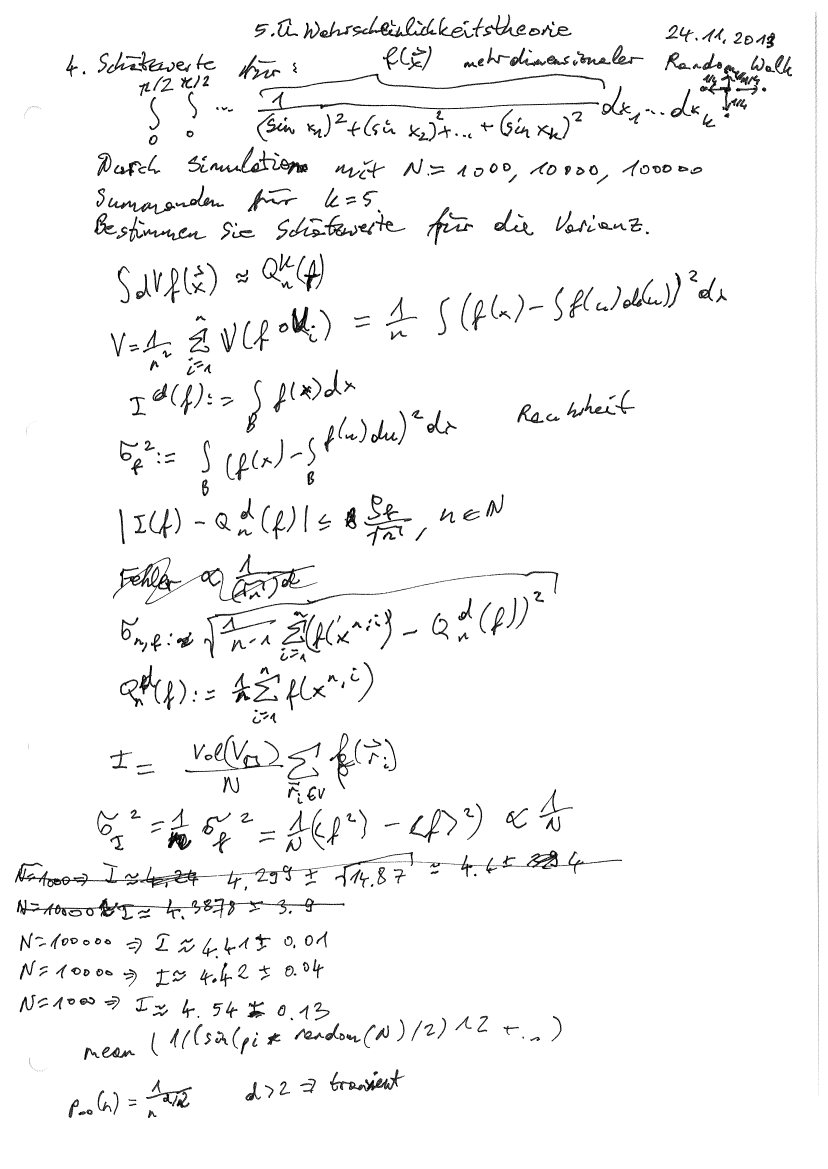 5. Ü Wahrscheinlichkeitstheorie 24.11.2013
4. Schätzwerte für: f(x⃗) mehrdimensionaler Random Walk
∫₀^{π/2} ∫₀^{π/2} ... 1/((sin x₁)²+(sin x₂)²+...+(sin x_k)²) dx₁...dx_k 1/4 1/4 1/4
Durch Simulation mit N = 1000, 10000, 100000
Summanden für k=5
Bestimmen Sie Schätzwerte für die Varianz.
∫dVf(x⃗) ≈ Q_n^k(f)
V = 1/n² Σ_{i=1}^n V(f∘U_i) = 1/n ∫(f(x)-∫f(u)d(u))² dx
I^d(f) := ∫_B f(x)dx
σ_f² := ∫_B (f(x)-∫_B f(u)du)² dx Rauheit
|I(f) - Q_n^d(f)| ≤ σ_f/√n, n∈N
Fehler ∝ 1/(√n)^d
σ_{n,f} := √(1/(n-1) Σ_{i=1}^n (f(x^{n,i}) - Q_n^d(f))²)
Q_n^d(f) := 1/n Σ_{i=1}^n f(x^{n,i})
I = Vol(V_□)/N Σ_{r⃗_i∈V} f(r⃗_i)
σ_I² = 1/N σ_f² = 1/N(<f²> - <f>²) ∝ 1/N
N=1000 ⇒ I ≈ 4.24 4.299 ± √14.87 ≈ 4.4 ± 4
N=10000 I ≈ 4.3878 ± 3.9
N=100000 ⇒ I ≈ 4.41 ± 0.01
N=10000 ⇒ I ≈ 4.42 ± 0.04
N=1000 ⇒ I ≈ 4.54 ± 0.13
mean (1/(sin(pi * random(N)/2)^2 + ...)
p_{00}(n) = 1/n^{d/2} d>2 ⇒ transient